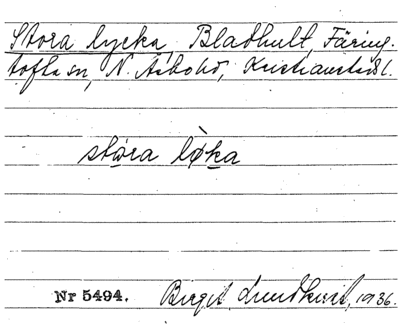 Stora lycka, Bladhult, Färing-
tofta sn, N. Åsbo hd, Kristianstads l.
stora lø̀ka
Nr 5494. Birgit Lundkvist, 1936.